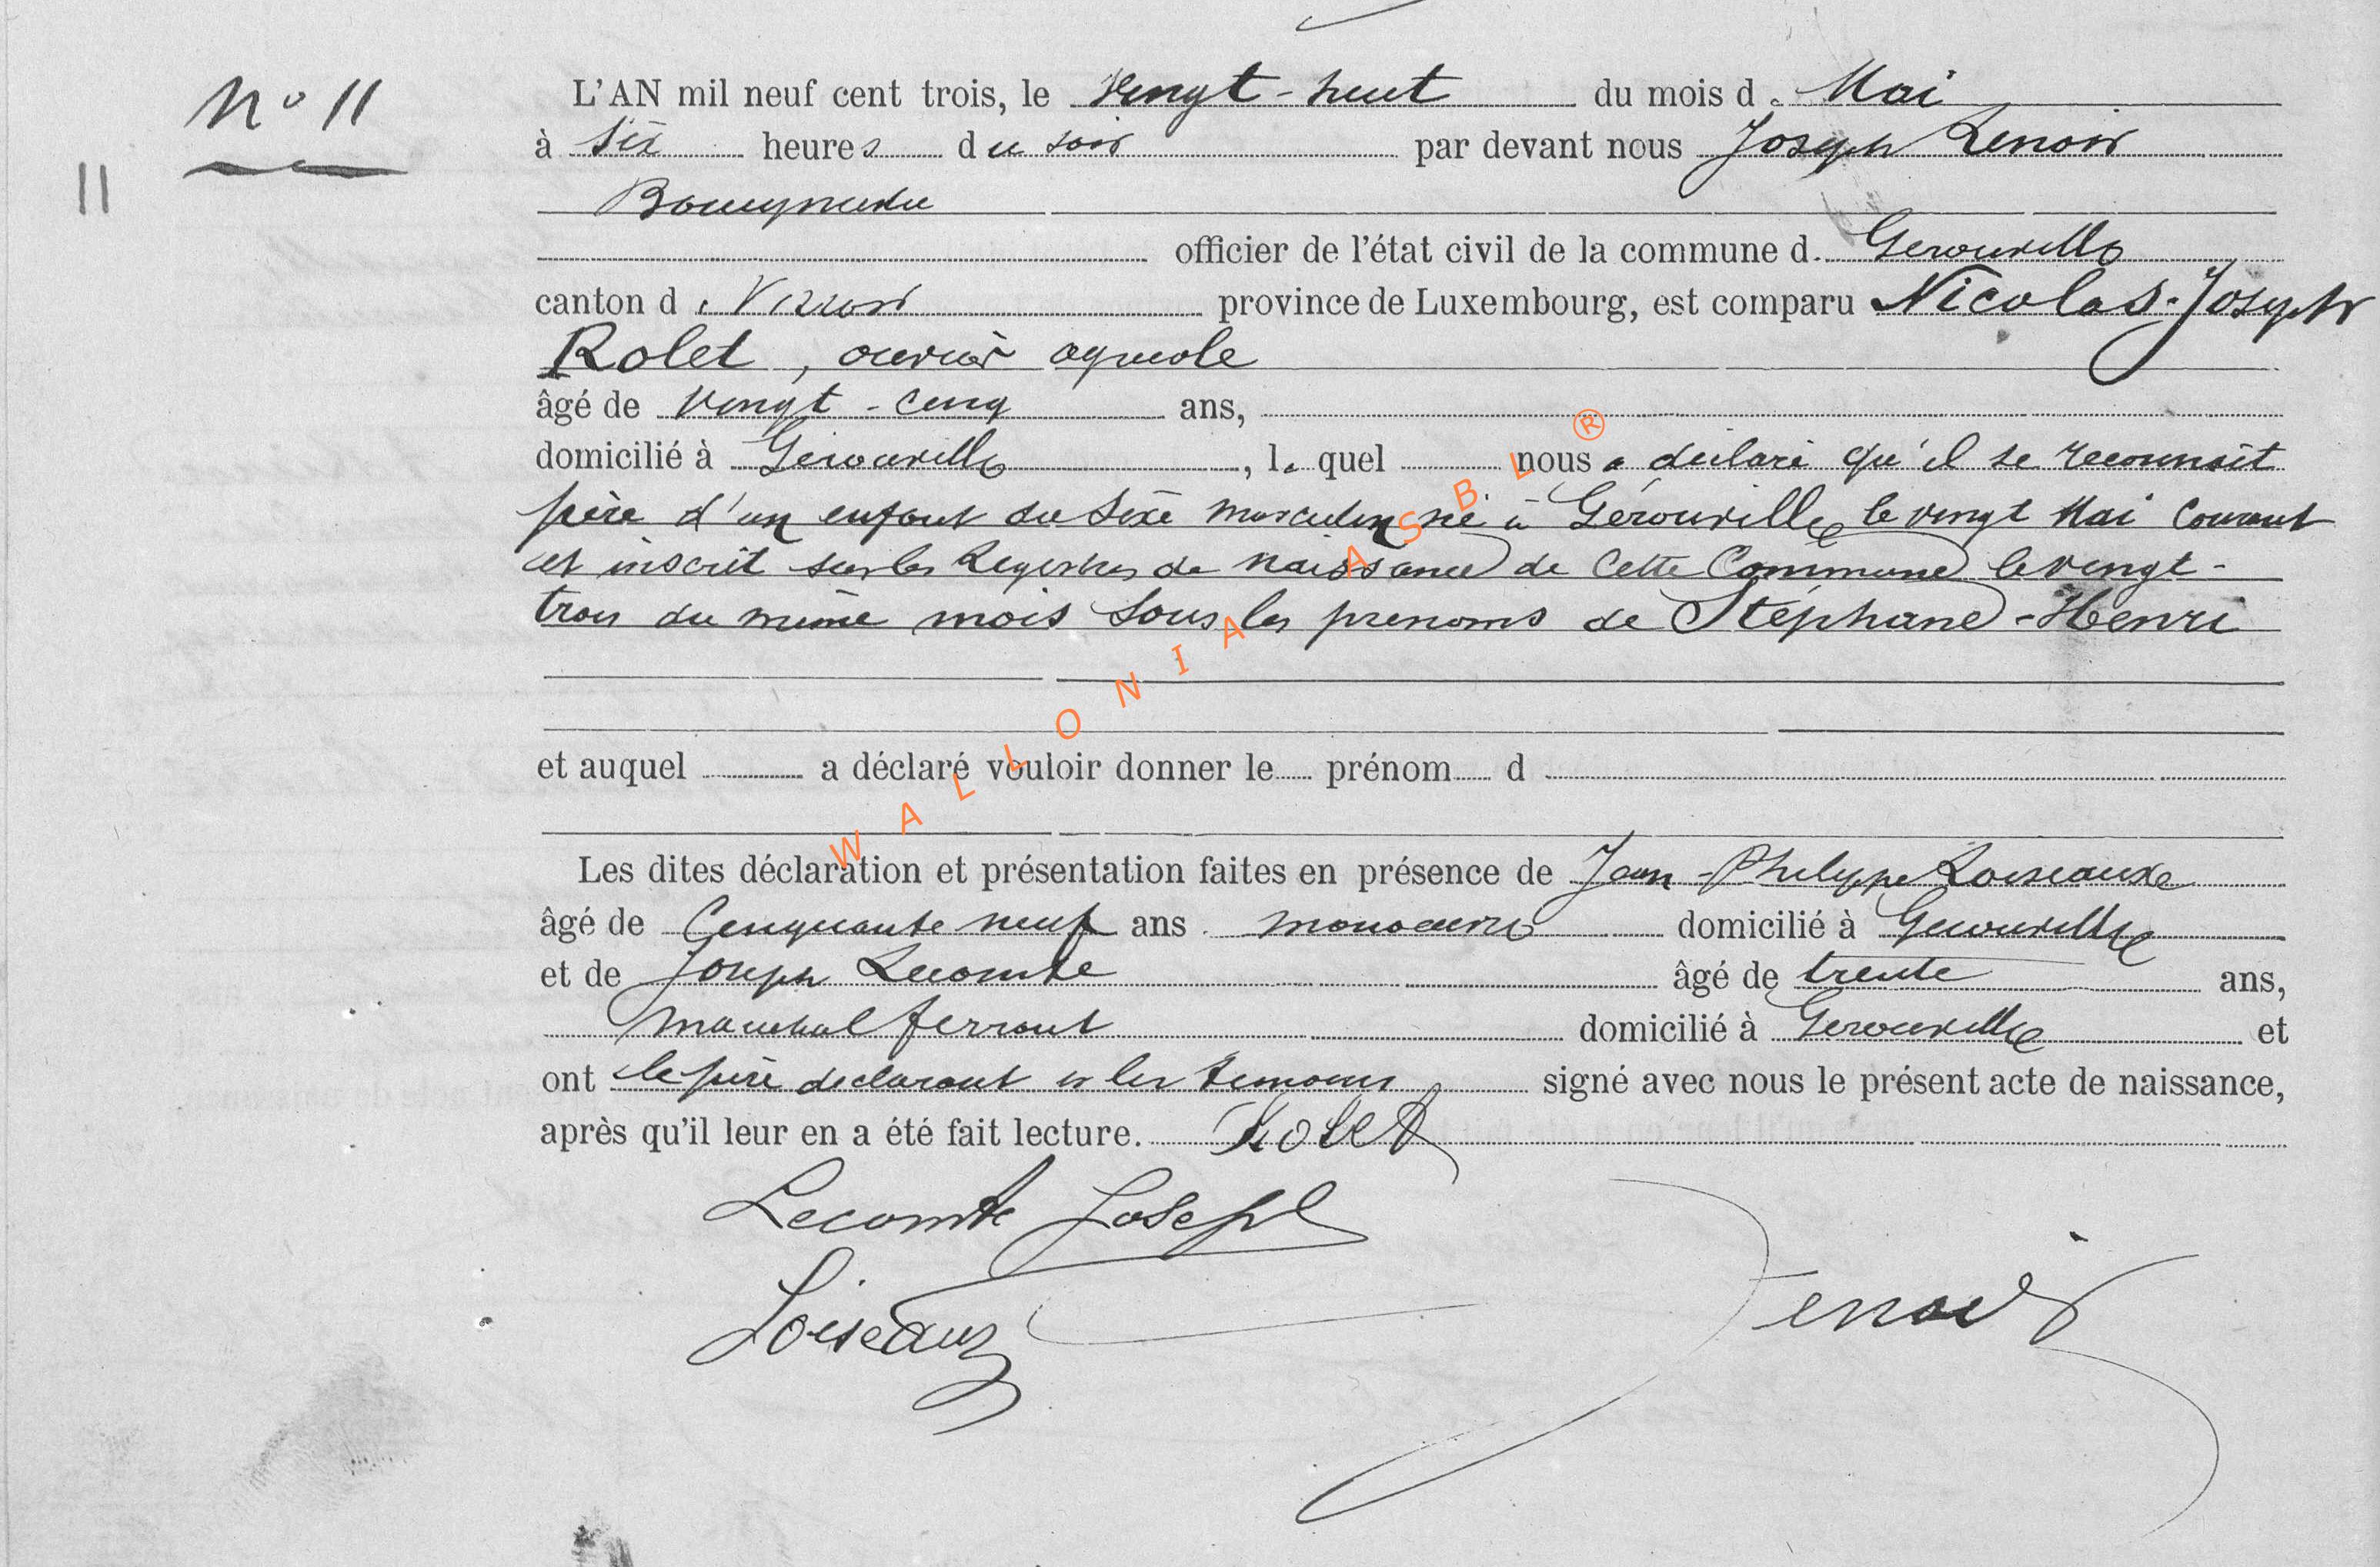 N° 11
11
L'AN mil neuf cent trois, le vingt-huit du mois de Mai
à six heures du soir par devant nous Joseph Lenoir
Bourgmestre
officier de l'état civil de la commune d. Gerouville
canton de Virton province de Luxembourg, est comparu Nicolas-Joseph
Rolet, ouvrier agricole
âgé de vingt-cinq ans,
domicilié à Gérouville, le quel nous a déclaré qu'il se reconnait
père d'un enfant du sexe masculin né à Gérouville le vingt Mai courant
et inscrit sur les Registres de naissance de cette Commune le vingt-
trois du même mois sous les prenoms de Stéphane-Henri
et auquel a déclaré vouloir donner le prénom d
Les dites déclaration et présentation faites en présence de Jean-Philippe Loiseaux
âgé de Cinquante neuf ans manoeuvre domicilié à Gerouville
et de Joseph Lecomte âgé de trente ans,
marechal ferrant domicilié à Gerouville et
ont le père declarant et les temoins signé avec nous le présent acte de naissance,
après qu'il leur en a été fait lecture. Rolet
Lecomte Joseph
Loiseaux
Lenoir
WALLONIA ASBL ®